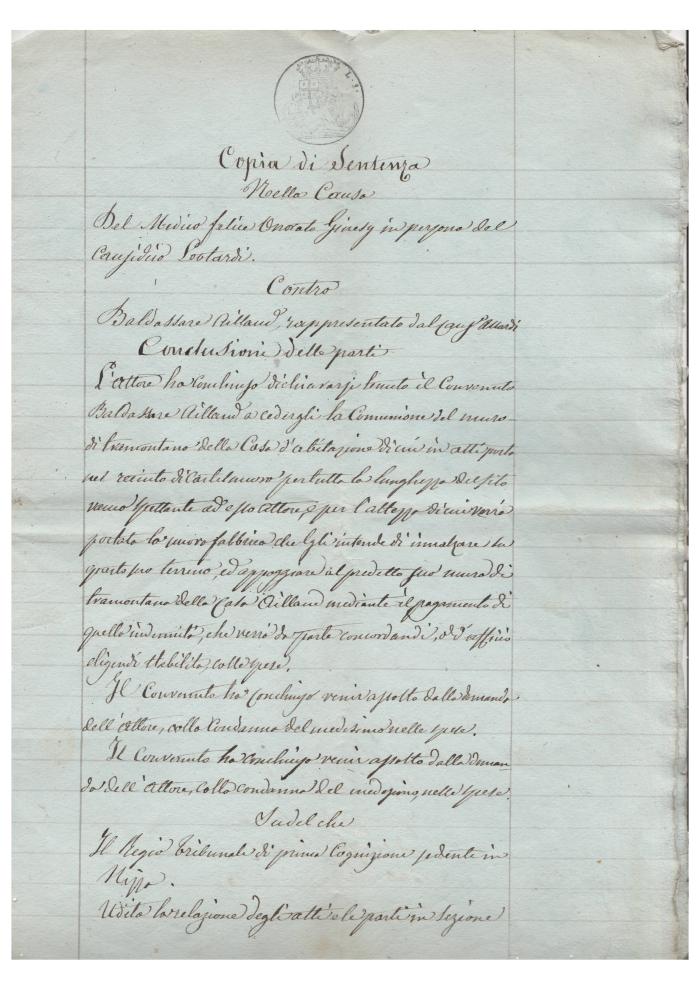 L. 1.
Copia di Sentenza
Nella Causa
Del Medico felice Onorato Giucey in persona del
Causidico Leotardi.
Contro
Baldassare Aillaud, rappresentato dal Caus.
Conclusioni delle parti
L'Attore ha conchiuso dichiararsi tenuto il Convenuto
Baldassare Aillaud a cedergli la Comunione del muro
di tramontana della Casa d'abitazione di cui in atti posta
nel recinto di Castelnuovo per tutta la lunghezza del sito
spettante ad esso attore, e per l'altezza di cui verrà
portata la nuova fabbrica che Egli intende di innalzare su
questo suo terreno, ed appoggiare al predetto suo muro di
tramontana della Casa Aillaud mediante il pagamento di
quella indennità, che verrà da periti concordandi, o d'ufficio
eligendi stabilita, colle spese.
Il Convenuto ha Conchiuso venir assolto dalla domanda
dell'Attore, colla Condanna del medesimo nelle spese.
Il Convenuto ha conchiuso venir assolto dalla doman-
da dell'Attore, colla condanna del medesimo, nelle spese.
Su del che
Il Regio Tribunale di prima Cognizione sedente in
Nizza.
Udita la relazione degli atti e le parti in Sezione